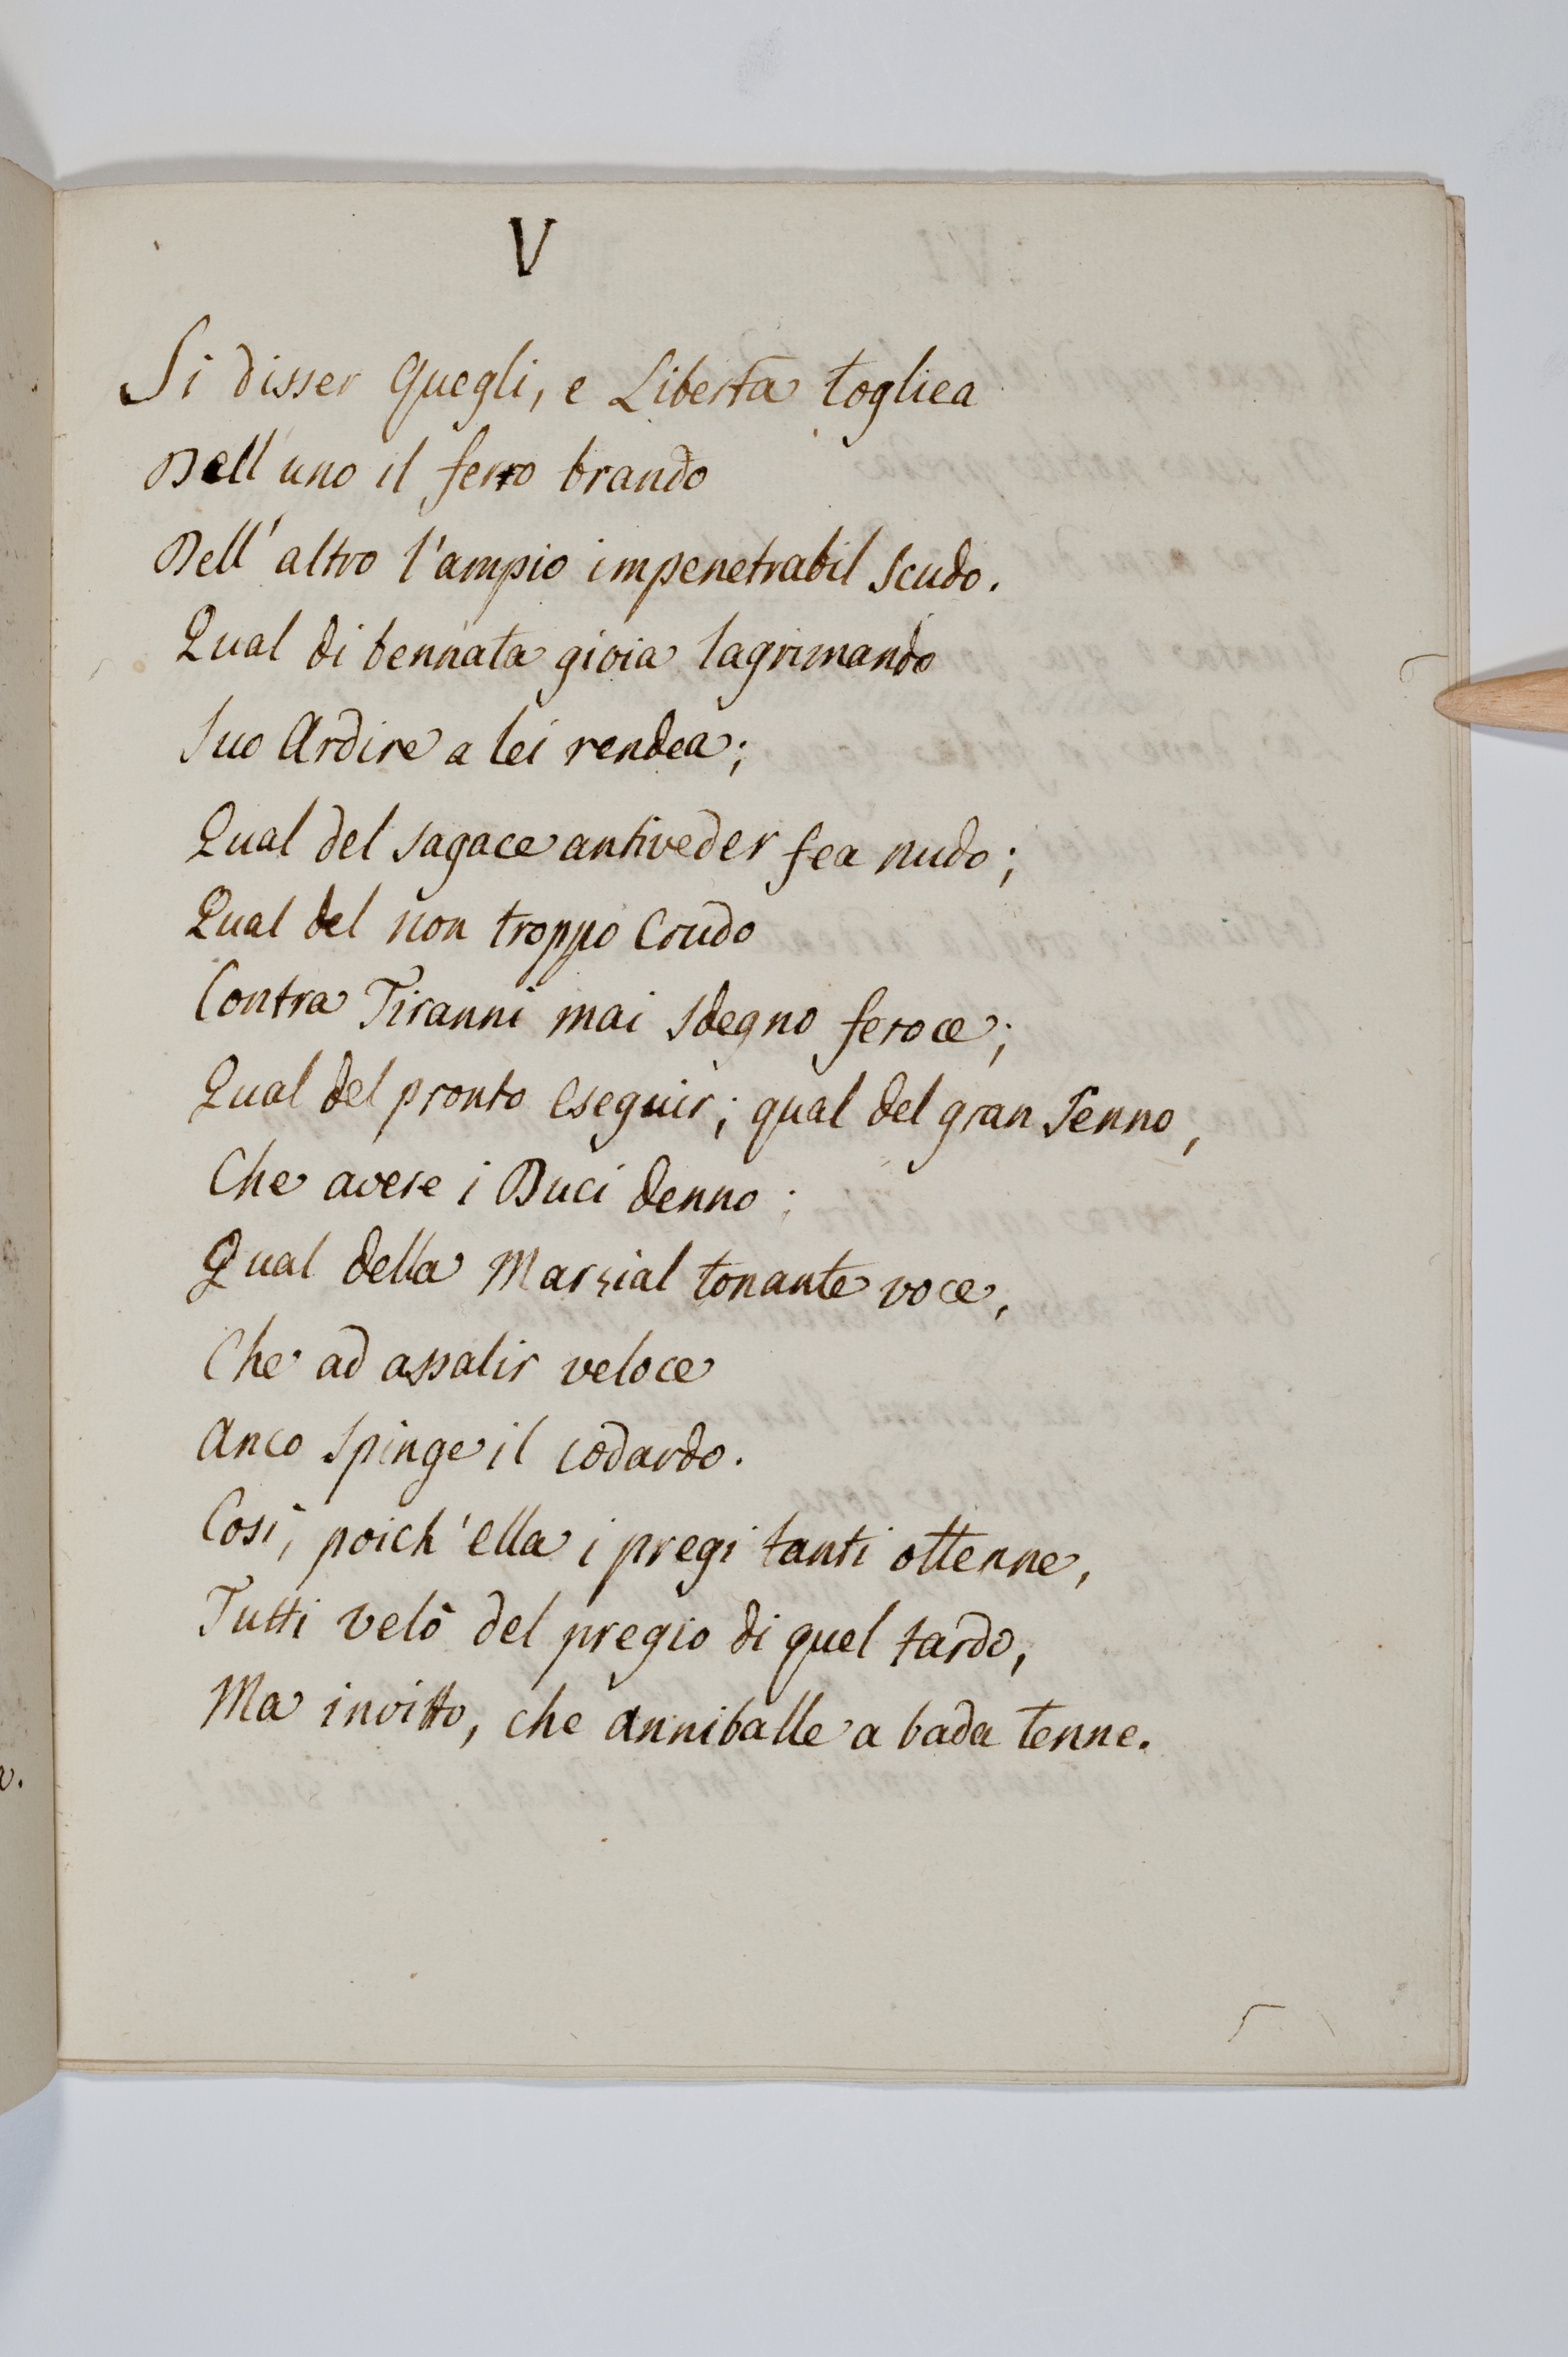 V
Si disser Quegli, e Libertà togliea
Dell'uno il ferro brando
Dell'altro l'ampio impenetrabil scudo.
Qual di bennata gioia lagrimando
Suo Ardire a lei rendea;
Qual del sagace antiveder fea nudo;
Qual del non troppo Crudo
Contra Tiranni mai sdegno feroce;
Qual del pronto eseguir; qual del gran Senno,
Che avere i Duci denno;
Qual della Marzial tonante voce,
Che ad assalir veloce
Anco spinge il codardo.
Così, poich'ella i pregi tanti ottenne,
Tutti velò del pregio di quel tardo,
Ma invitto, che Anniballe a bada tenne.